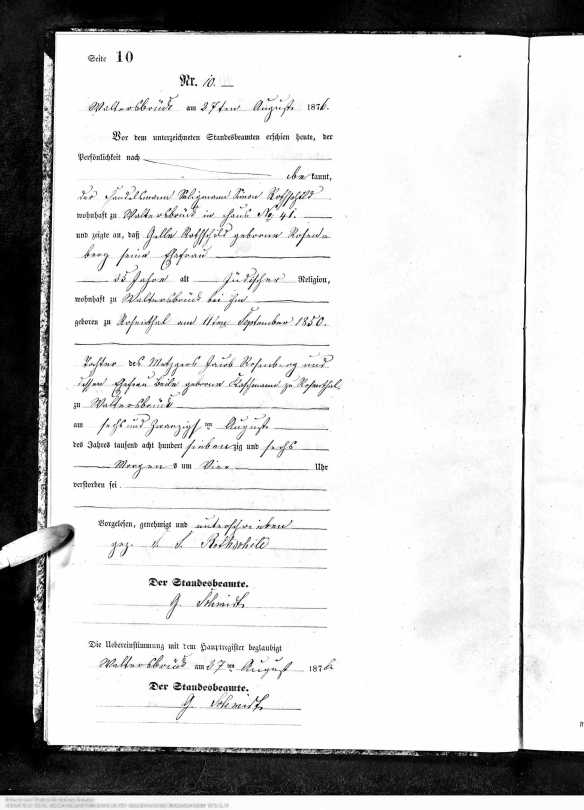 Seite 10
Nr. 10.
Waltersbrück am 27ten August 1876.
Vor dem unterzeichneten Standesbeamten erschien heute, der
Persönlichkeit nach
bekannt,
der Handelsmann Seligmann Simon Rothschild
wohnhaft zu Waltersbrück in Haus No. 41.
und zeigte an, daß Gelle Rothschild geborne Rosen-
berg seine Ehefrau
Jahre alt jüdischer Religion,
wohnhaft zu Waltersbrück bei ihm
geboren zu Rosenthal am 11ten September 1850.
Tochter des Metzgers Jacob Rosenberg und
dessen Ehefrau geborne zu Rosenthal
zu Waltersbrück
am sechs und zwanzigsten August
des Jahres tausend acht hundert siebenzig und sechs
Morgens um vier Uhr
verstorben sei.
Vorgelesen, genehmigt und unterschrieben
gez. S. S. Rothschild
Der Standesbeamte.
G. Schmidt
Die Uebereinstimmung mit dem Hauptregister beglaubigt
Waltersbrück am 27ten August 1876.
Der Standesbeamte.
G. Schmidt